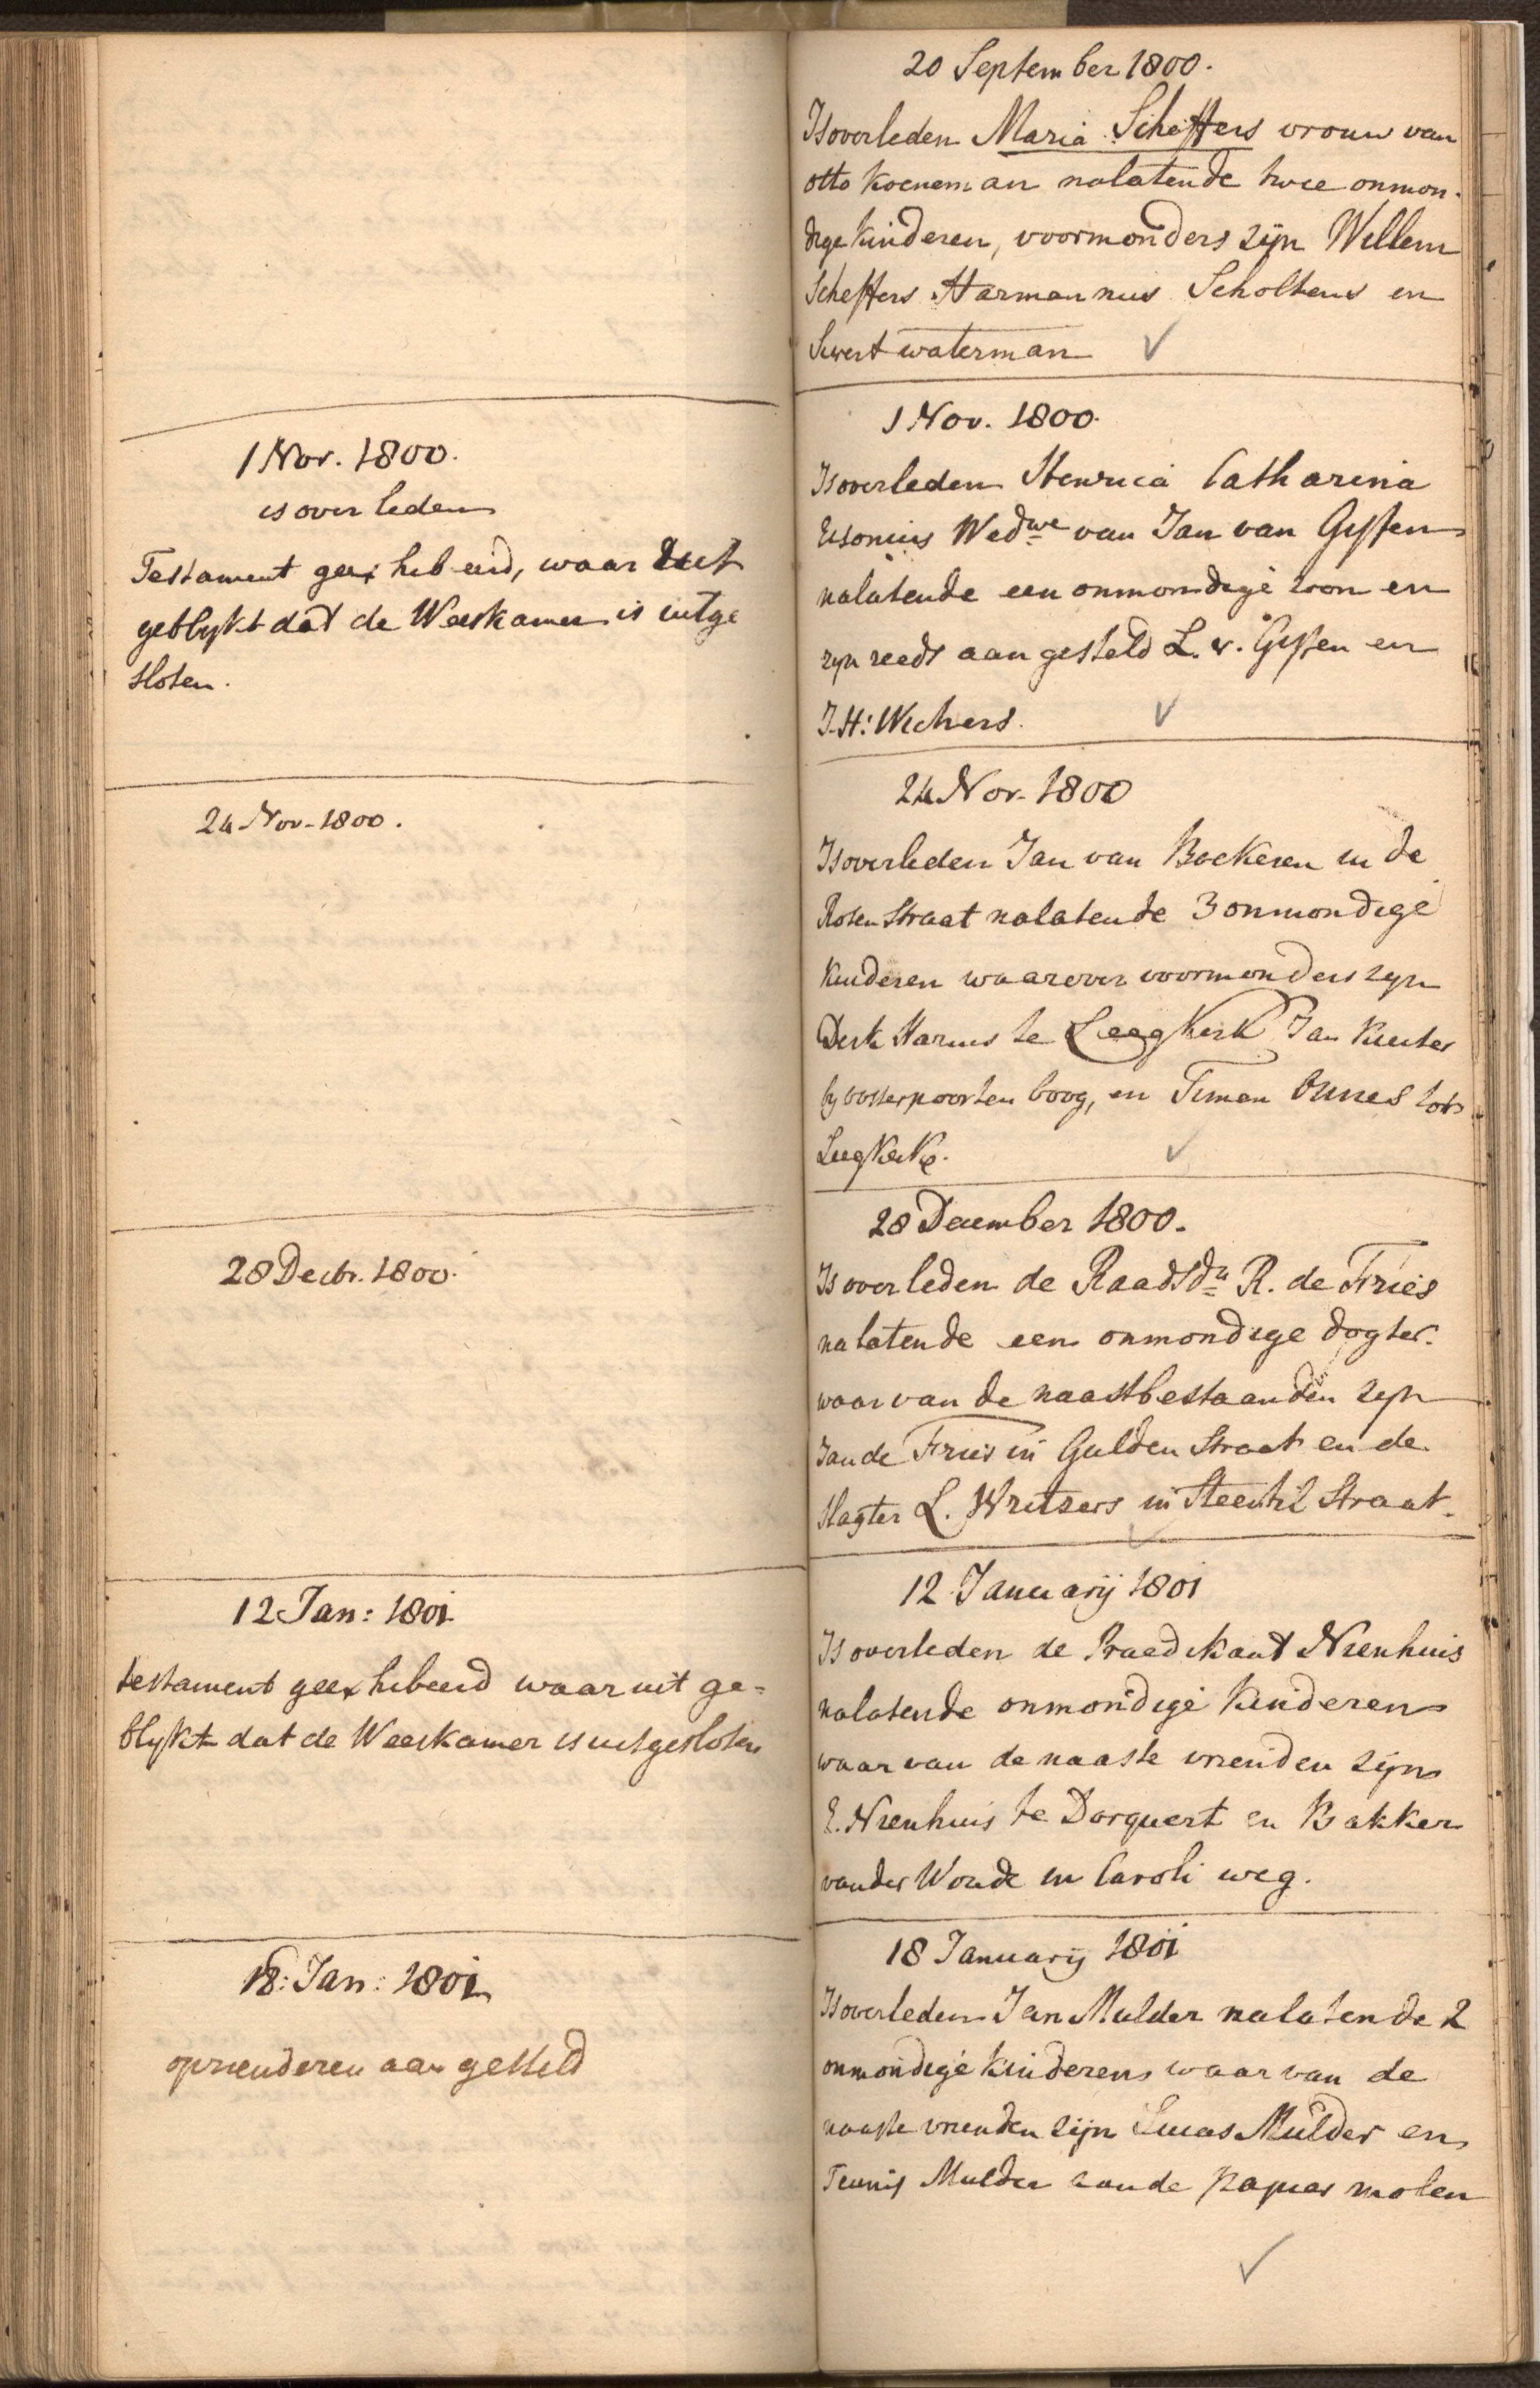 1 Nov. 1800.
is overleden
Testament geexhibeerd, waar uit
geblykt dat de Weeskamer is uitge
sloten.
24 Nov. 1800.
28 Decbr. 1800.
12 Jan: 1801
testament geexhibeerd waar uit ge=
blykt dat de Weeskamer is uitgesloten
18: Jan: 1801
opzienderen aangesteld
20 September 1800.
Is overleden Maria Scheffers vrouw van
otto Koeneman nalatende twee onmon-
dige kinderen, voormonders zijn Willem
Scheffers Harmannus Scholtens en
Siwert waterman
1 Nov. 1800.
Is overleden Henrica Catharina
Elsonius Wedwe van Jan van Gyssen
nalatende een onmondige zoon en
zyn reeds aan gesteld L. v. Gyssen en
J. H: Wichers.
24 Nov. 1800
Is overleden Jan van Boekeren in de
Rosen Straat nalatende 3 onmondige
kinderen waarover voormonders zyn
Derk Harms te Leegkerk Jan Kuiter
by oosterpoorten boog, en Timen Onnes tot
Leegkerke.
28 December 1800.
Is overleden de Raadsdr R. de Fries
nalatende een onmondige dogter.
waar van de naastbestaanden zyn
Jan de Fries in Gulden Straat en de
slagter L. Writzers in Steentil Straat.
12 Januarij 1801
Is overleden de Praedikant Nienhuis
nalatende onmondige kinderen
waar van de naaste vrienden zijn
E. Nienhuis te Dorquert en Bakker
van der Woude in Caroli weg.
18 Januarij 1801
Is overleden Jan Mulder nalatende 2
onmondige kinderen waar van de
naaste vrienden zijn Lucas Mulder en
Teunis Mulder aan de papier molen